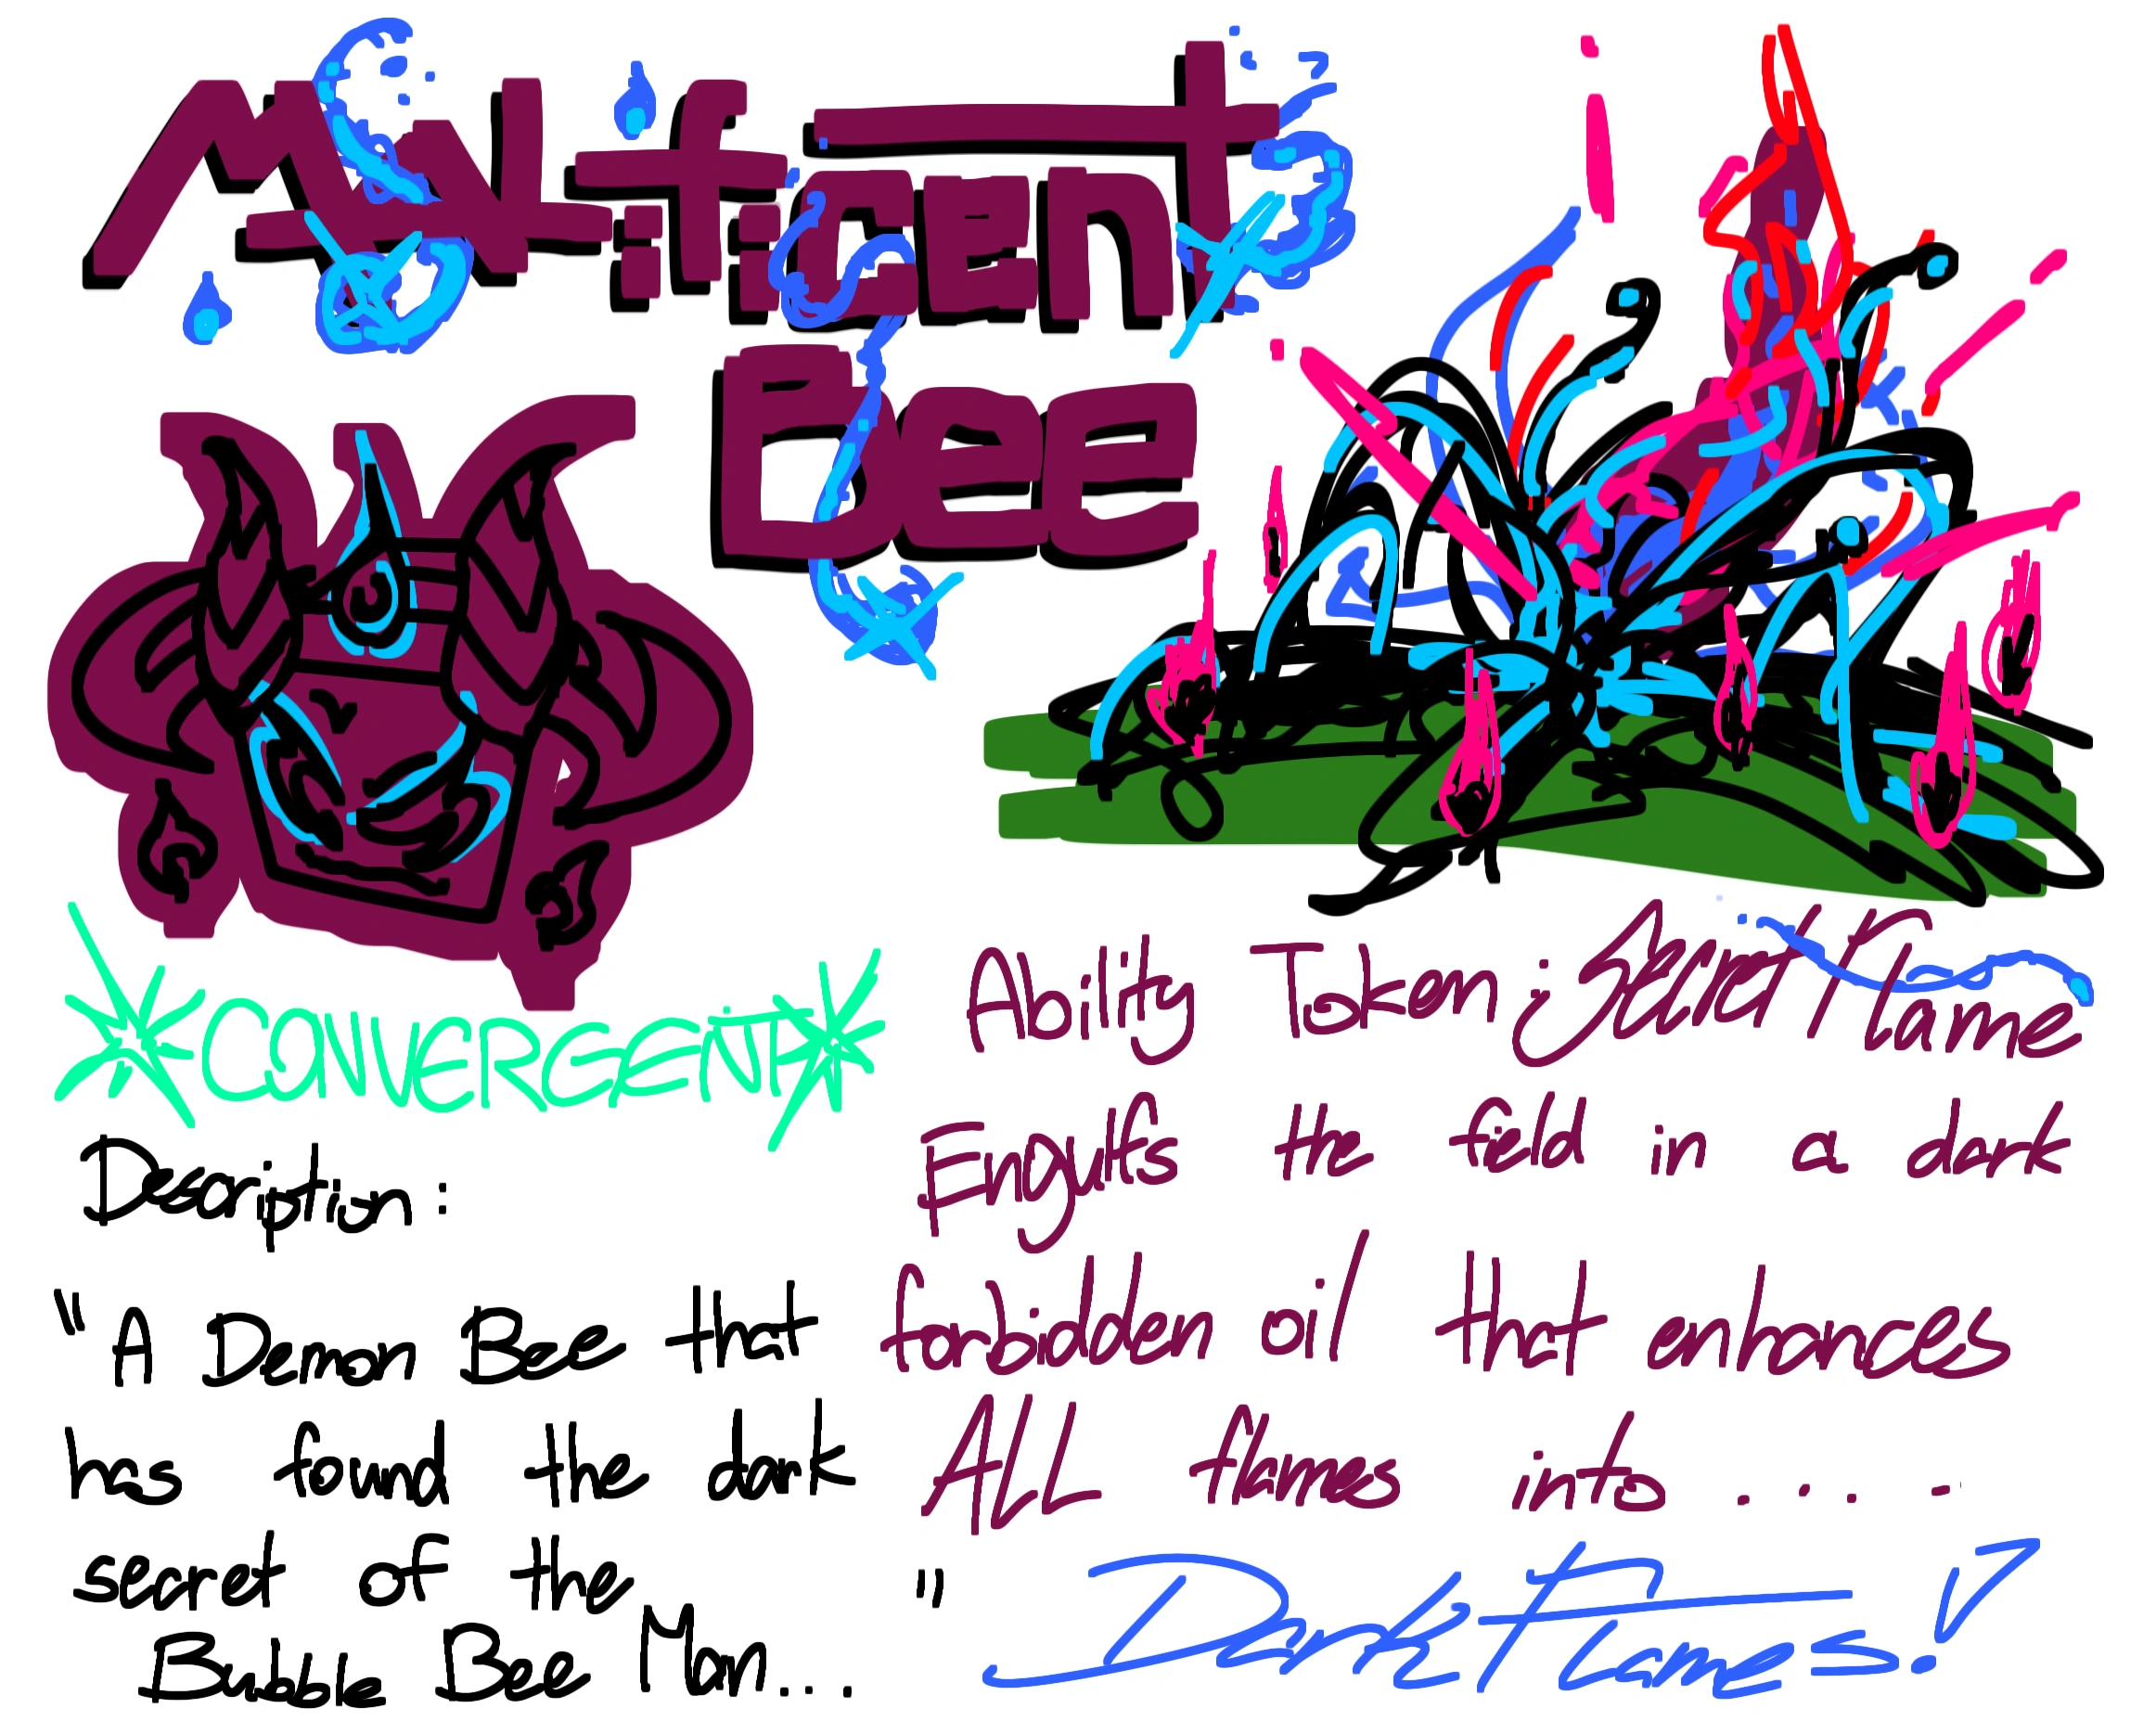 Bee
*CONVERGENT*
Description:
"A Demon Bee that
has found the dark
secret of the
Bubble Bee Man... "
Ability Token: Dark Flame
Engulfs the field in a dark
forbidden oil that enhances
ALL flames into....
Dark Flames!